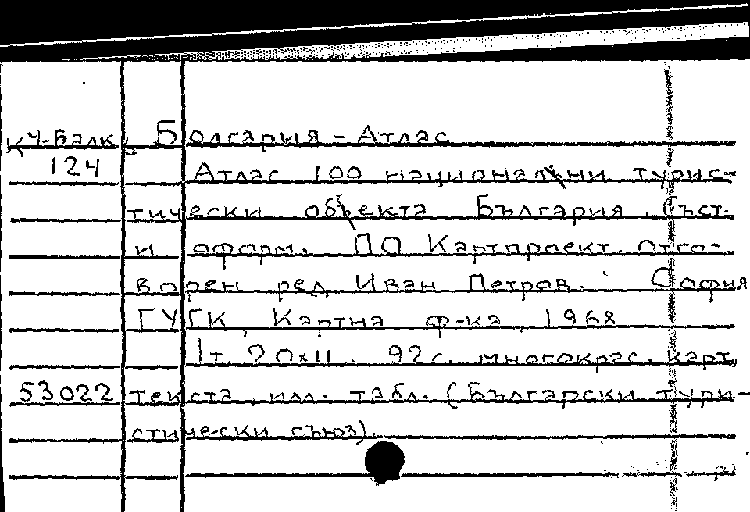 Кч-Балк. Болгария – Атлас
124 Атлас 100 национални турис-
тически обекта България. Съст.
и оформ. ПО Картпроект. Отго-
ворен ред. Иван Петров. София
ГУГК, Картна ф-ка, 1968
1т. 20х11. 92с. многокрас. карт,
53022 текста, илл. табл. (Български тури-
стически съюз).